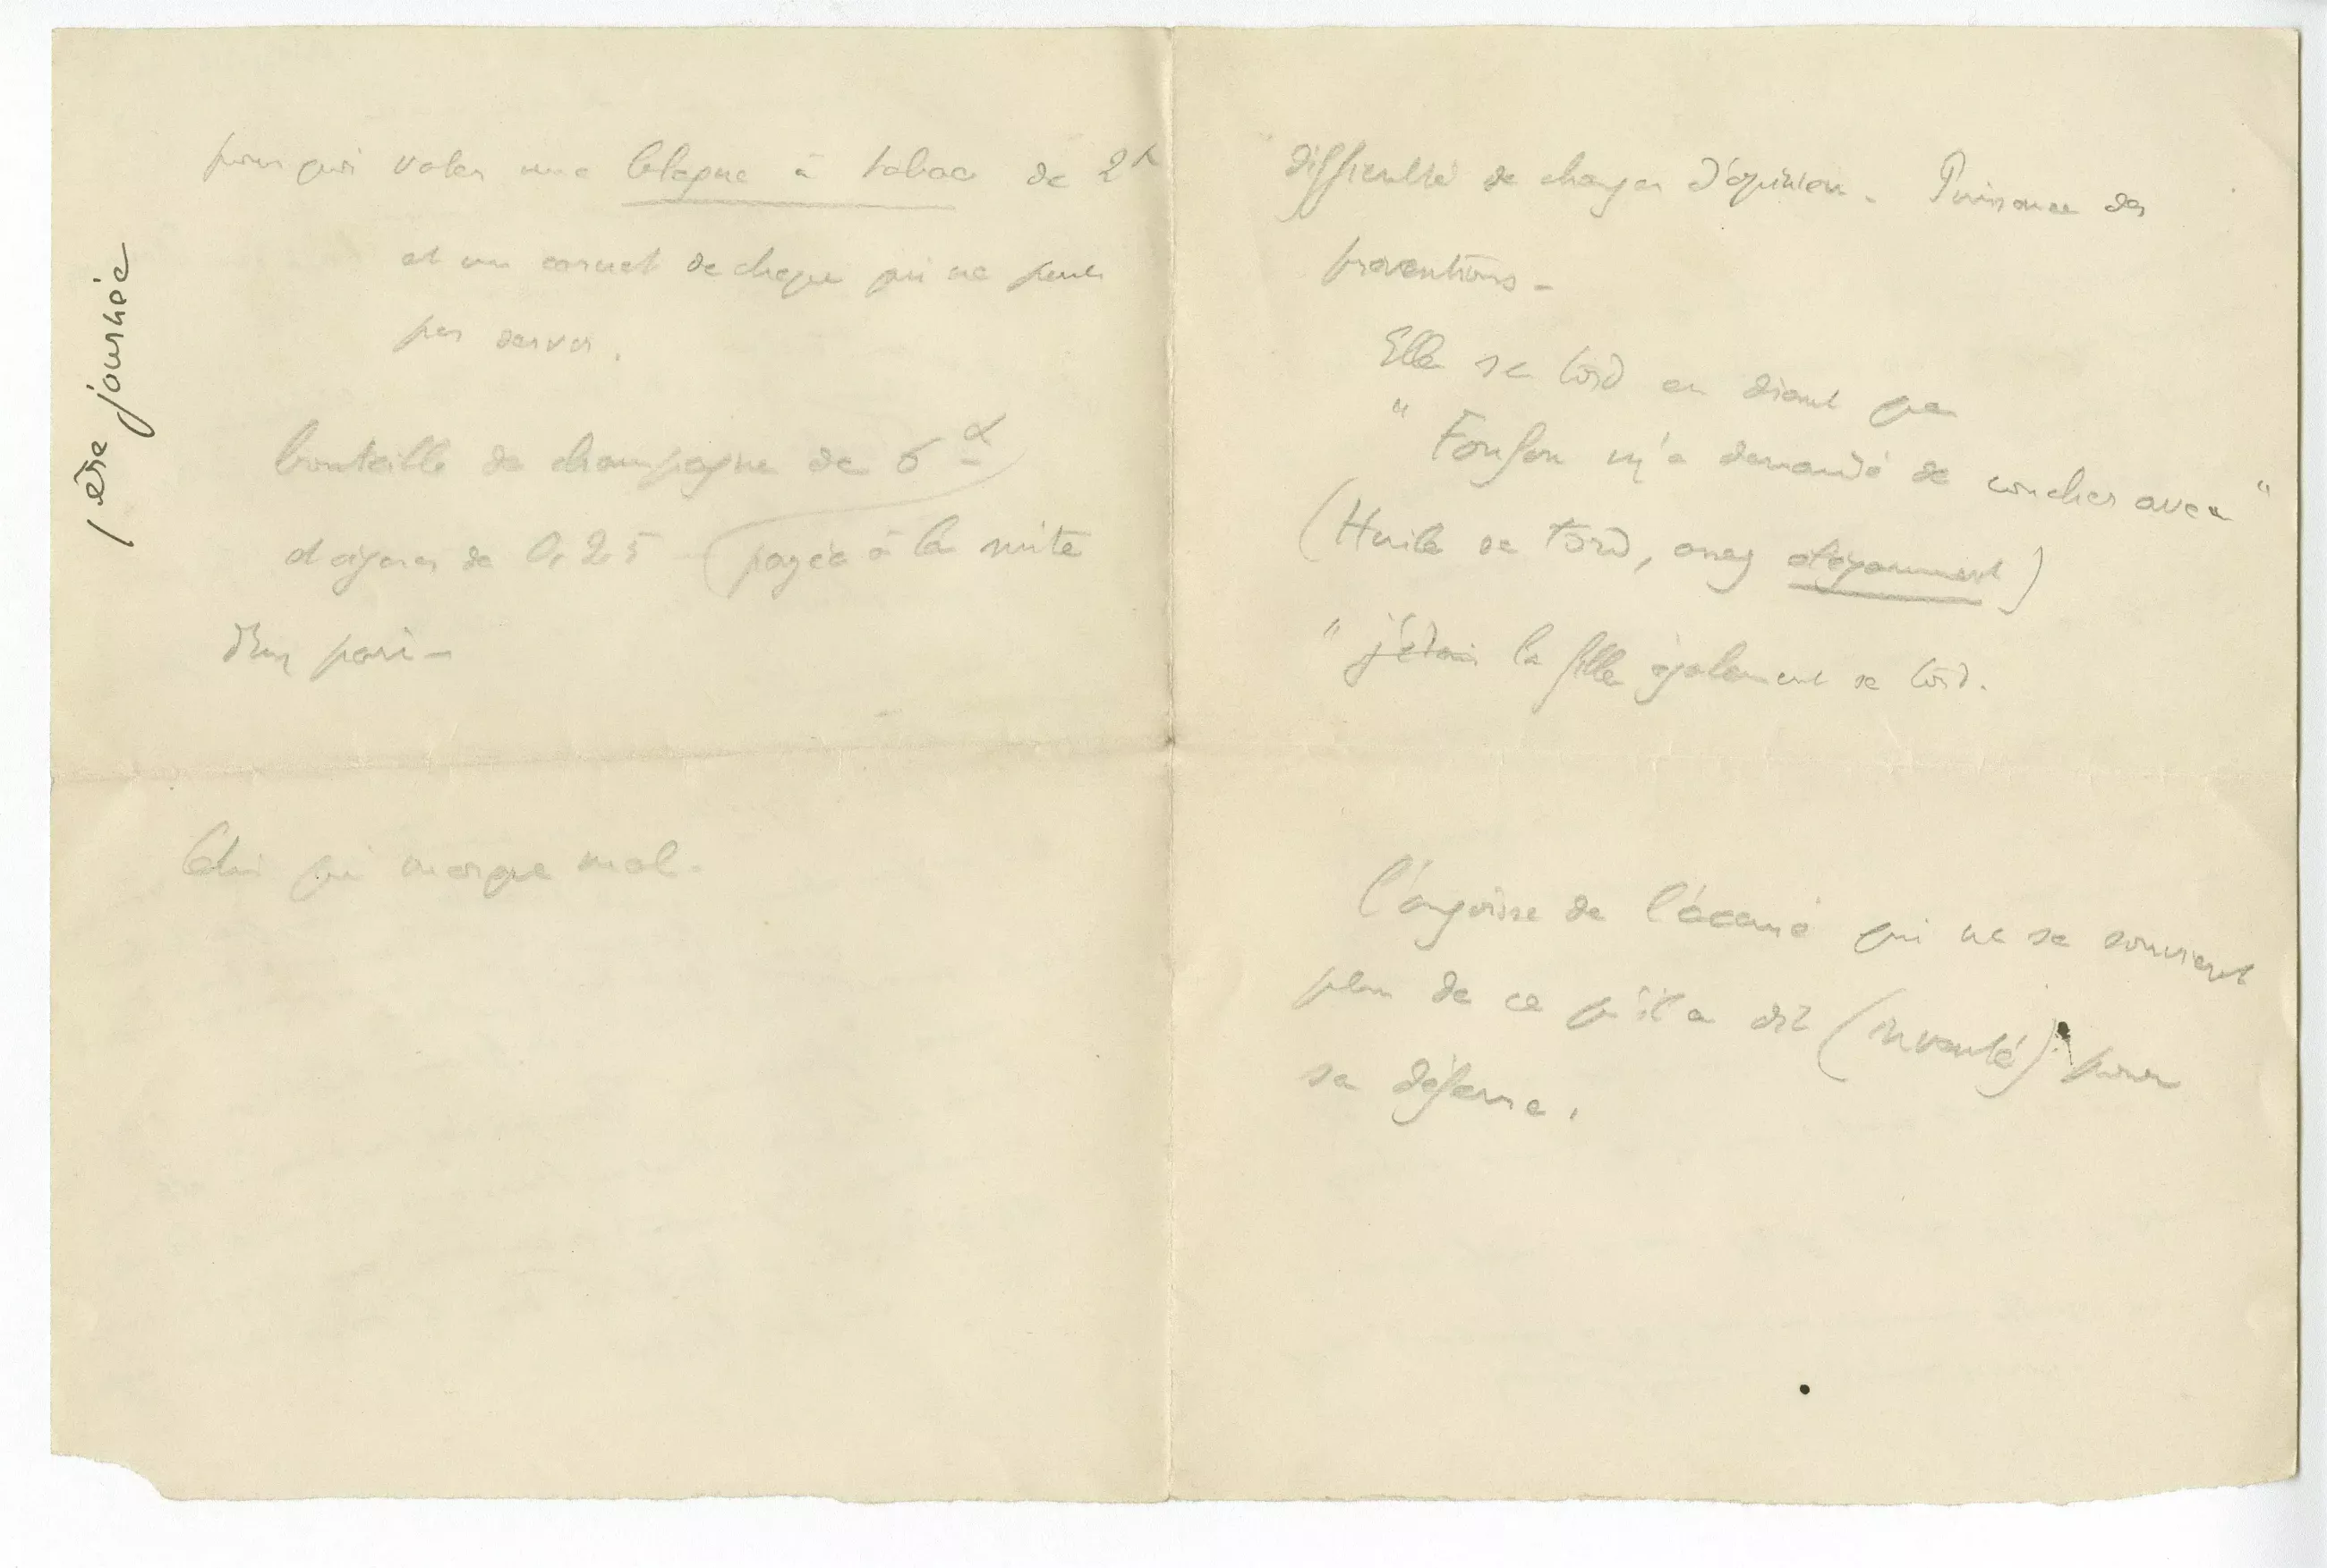 1ère journée
pourquoi voler une blague à tabac de 2f
et un carnet de cheque qui ne peut
pas servir.
bouteille de champagne de 6 f
et cigares de 0,25 (payés à la suite
d'un pari -
Celui qui marque mal.
difficulté de changer d'opinion. Puissance des
preventions -
Elle se tord en disant que
" Fonfon m'a demandé de coucher avec "
(Huile se tord, assez
" j'étais la fille également se tord.
l'angoisse de l'accusé qui ne se souvient
plus de ce qu'il a dit (inventé) pour
sa défense.